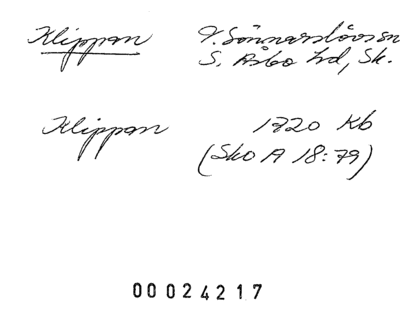 Klippan V. Sönnarslövs sn
S. Åsbo hd, Sk.
Klippan 1720 Kb
(Sko A 18:79)
00024217